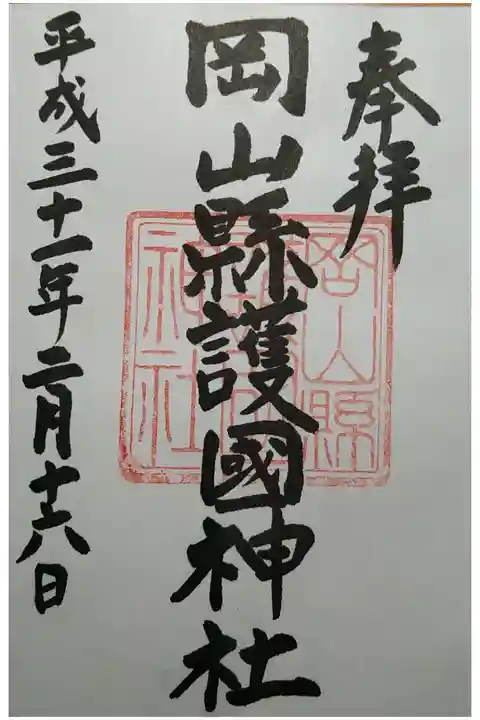 奉拝
岡山縣護國神社
岡山縣
護國
神社
平成三十一年二月十六日